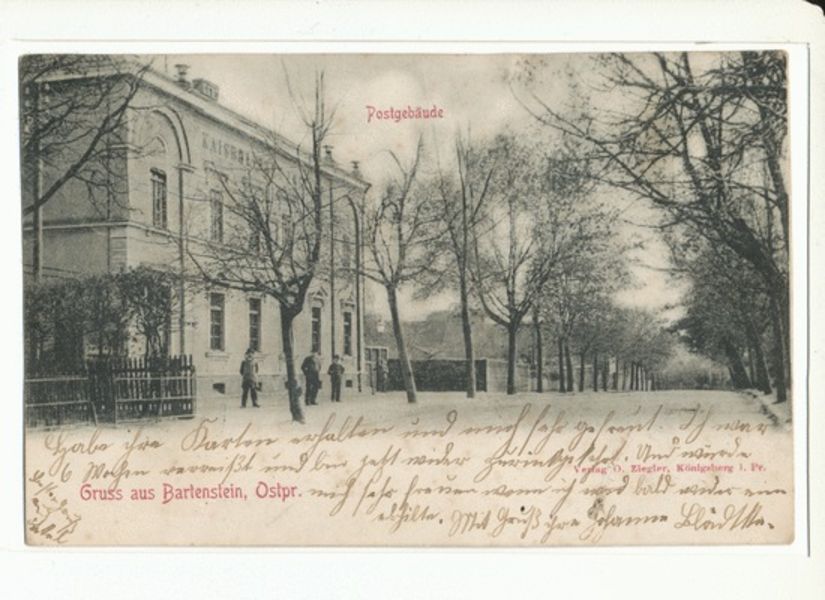 Postgebäude
KAISER
Habe ihre Karten erhalten und mich sehr gefreut. Ich war
6 Wochen verreißt und bin jetzt wider zurückgekehrt. Und würde
Verlag O. Ziegler, Königsberg i. Pr.
Gruss aus Bartenstein, Ostpr.
mich sehr freuen wenn ich und bald wider eine
erhilte. Mit Gruß ihre Johanna